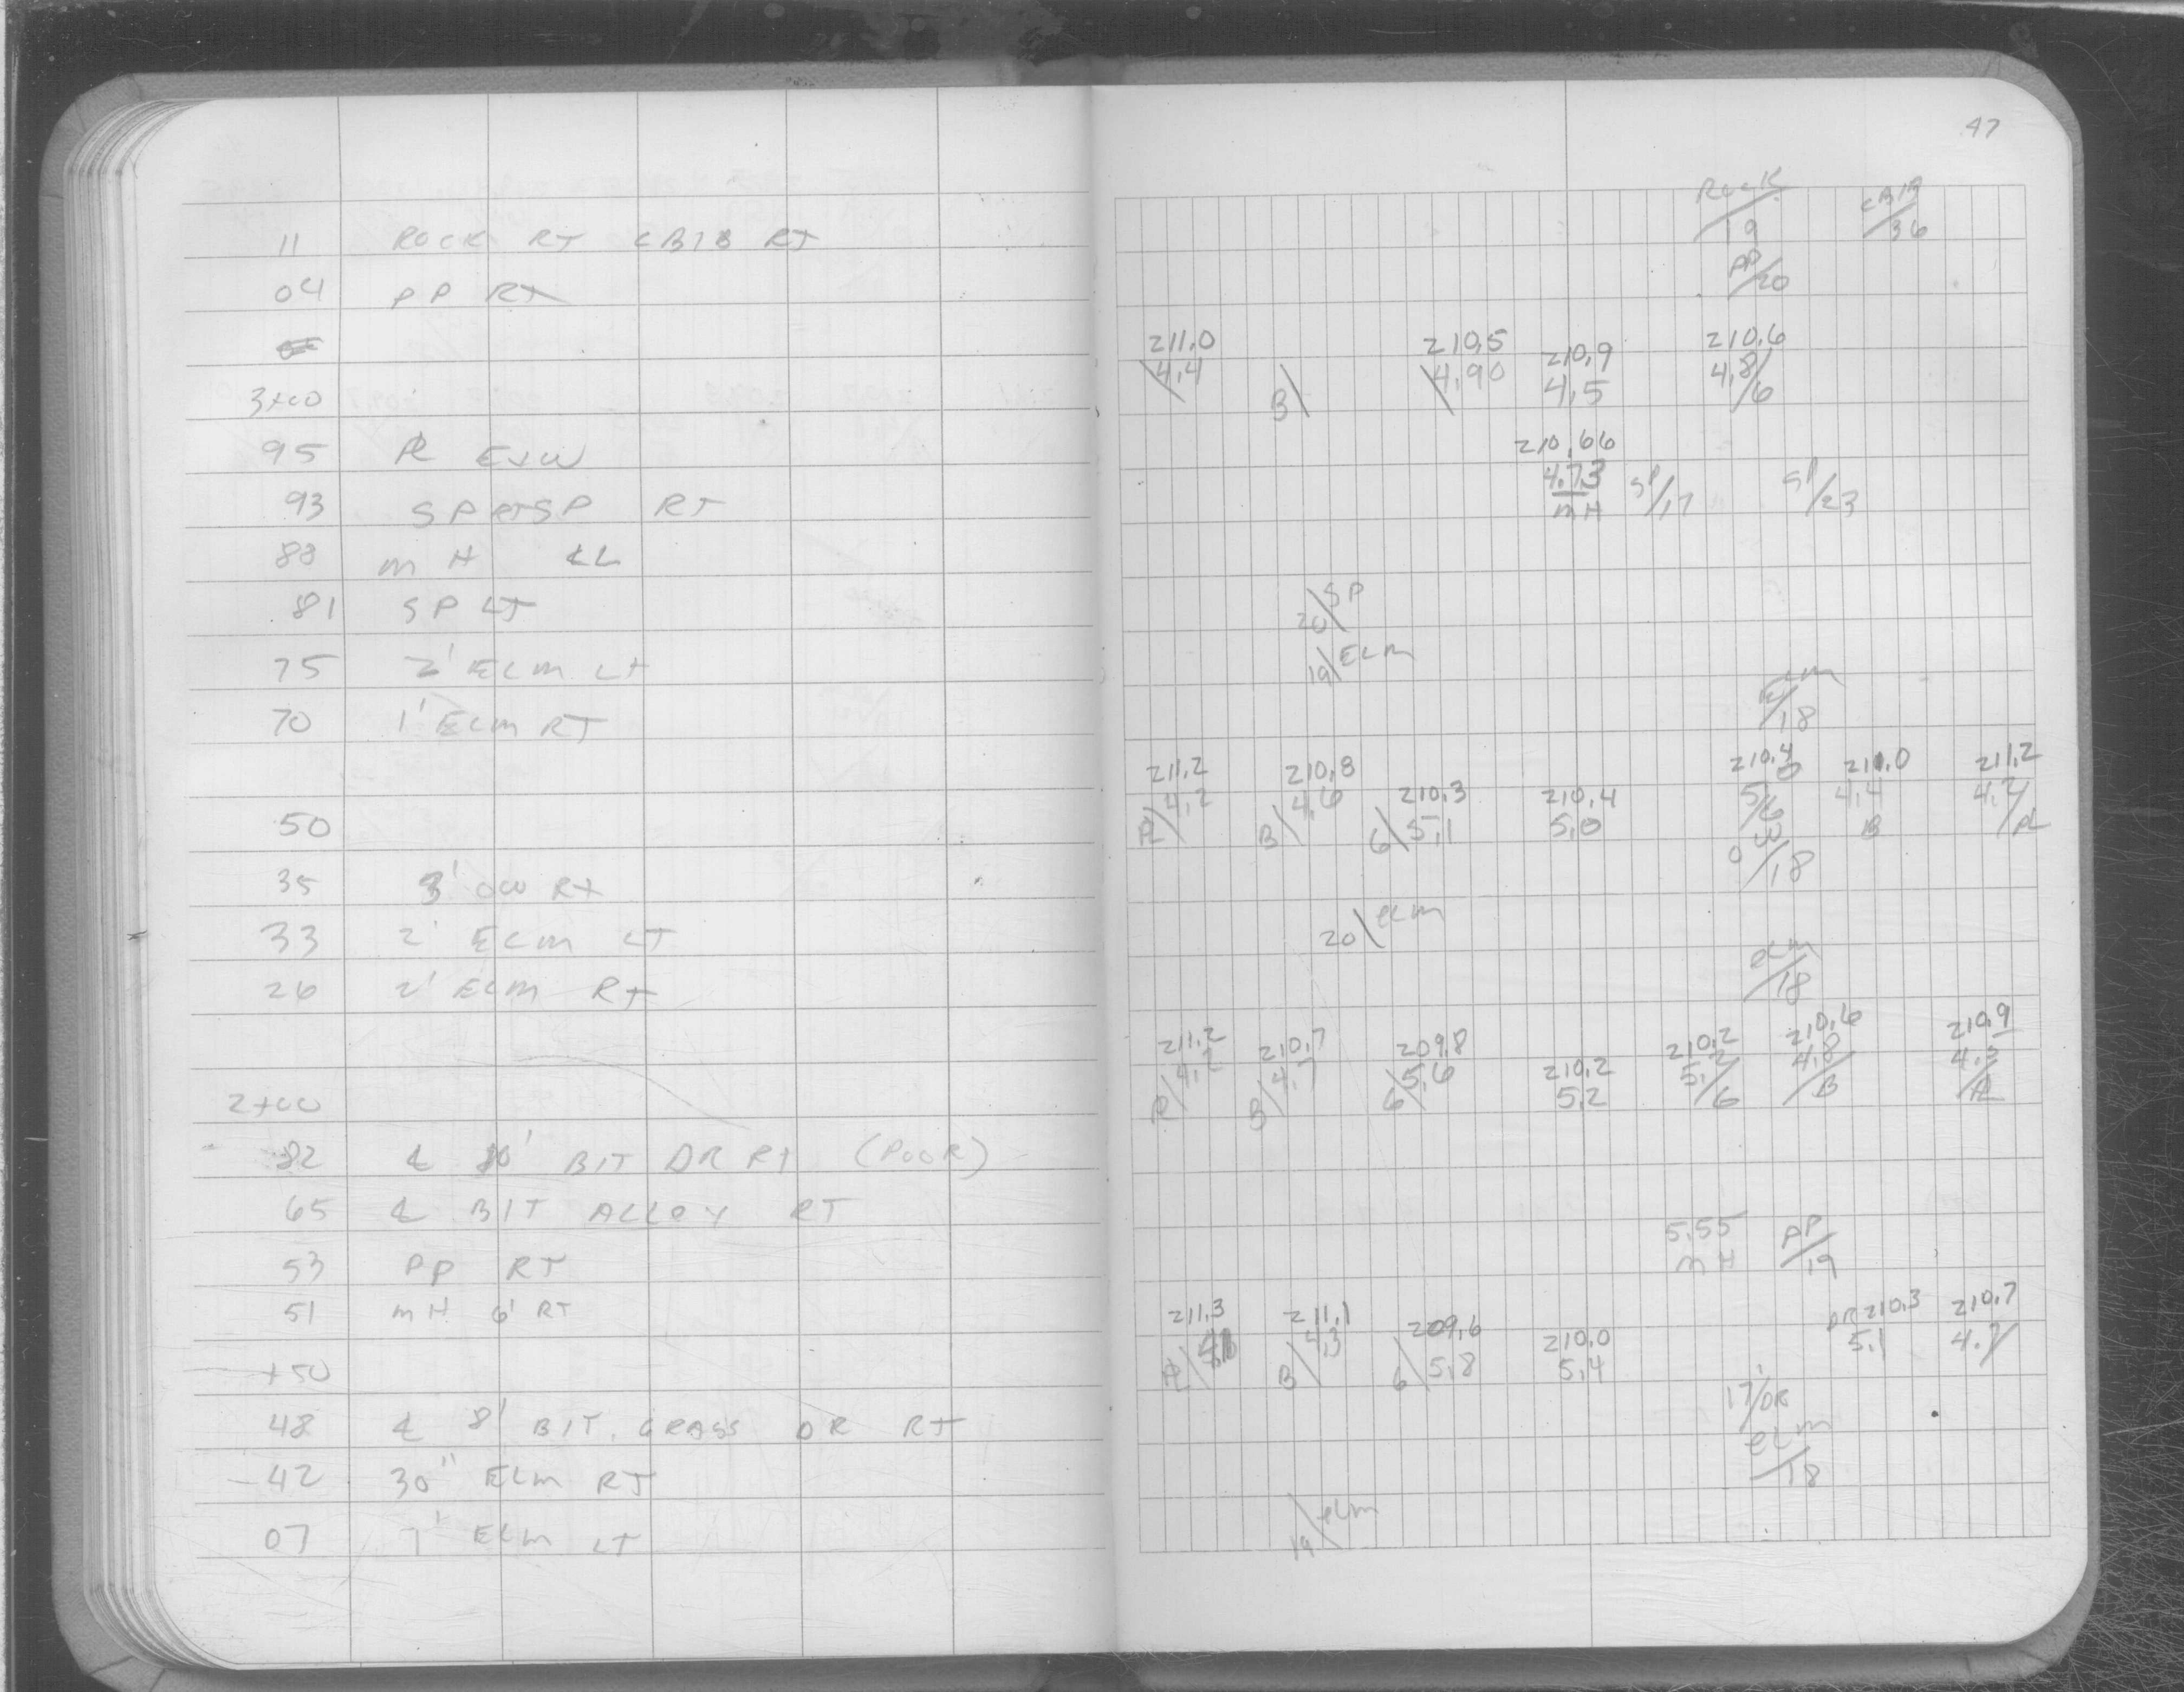 47
11 ROCK RT CB1B RT
04 PP RT
3+00
95 PL E+W
93 SP RT SP RT
88 MH CL
81 SP LT
75 2' ELM LT
70 1' ELM RT
50
35 3' OW RT
33 2' ELM LT
26 2' ELM RT
2+00
82 ℄ 10' BIT DR RT (POOR)
65 ℄ BIT ALLOY RT
53 PP RT
51 MH 6' RT
+50
48 ℄ 8' BIT. GRASS DR RT
42 30" ELM RT
07 1' ELM LT
ROCK/19 CB1B/36
PP/20
211.0 210.5 210.9 210.6
4.4 B\ 4.90 4.5 4.8/6
210.66
4.73 SP/17 SP/23
MH
20\SP
19\ELM
ELM/18
211.2 210.8 210.3 210.4 210.4 211.0 211.2
PL\4.2 B\4.6 6\5.1 5.0 5.0/6 4.4 B 4.2/PL
OW/18
20\ELM
ELM/18
211.2 210.7 209.8 210.2 210.2 210.6 210.9
PL\4.2 B\4.7 6\5.6 5.2 5.2/6 4.8/B 4.5/PL
5.55 PP/19
MH
211.3 211.1 209.6 210.0 DR 210.3 210.7
PL\ B\4.3 6\5.8 5.4 5.1 4.7/
17'/DR
ELM/18
19\ELM